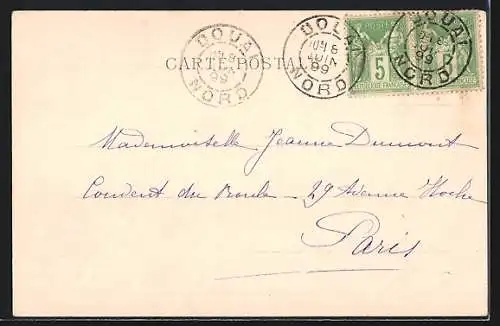 DOUAI
99
NORD
DOUAI
6
JUIN
99
NORD
DOUAI
99
NORD
CARTE POSTALE
POSTES
5
RÉPUBLIQUE FRANÇAISE
5
Mademoiselle Jeanne Dumont
Couvent du Roule - 29 Avenue Hoche
Paris